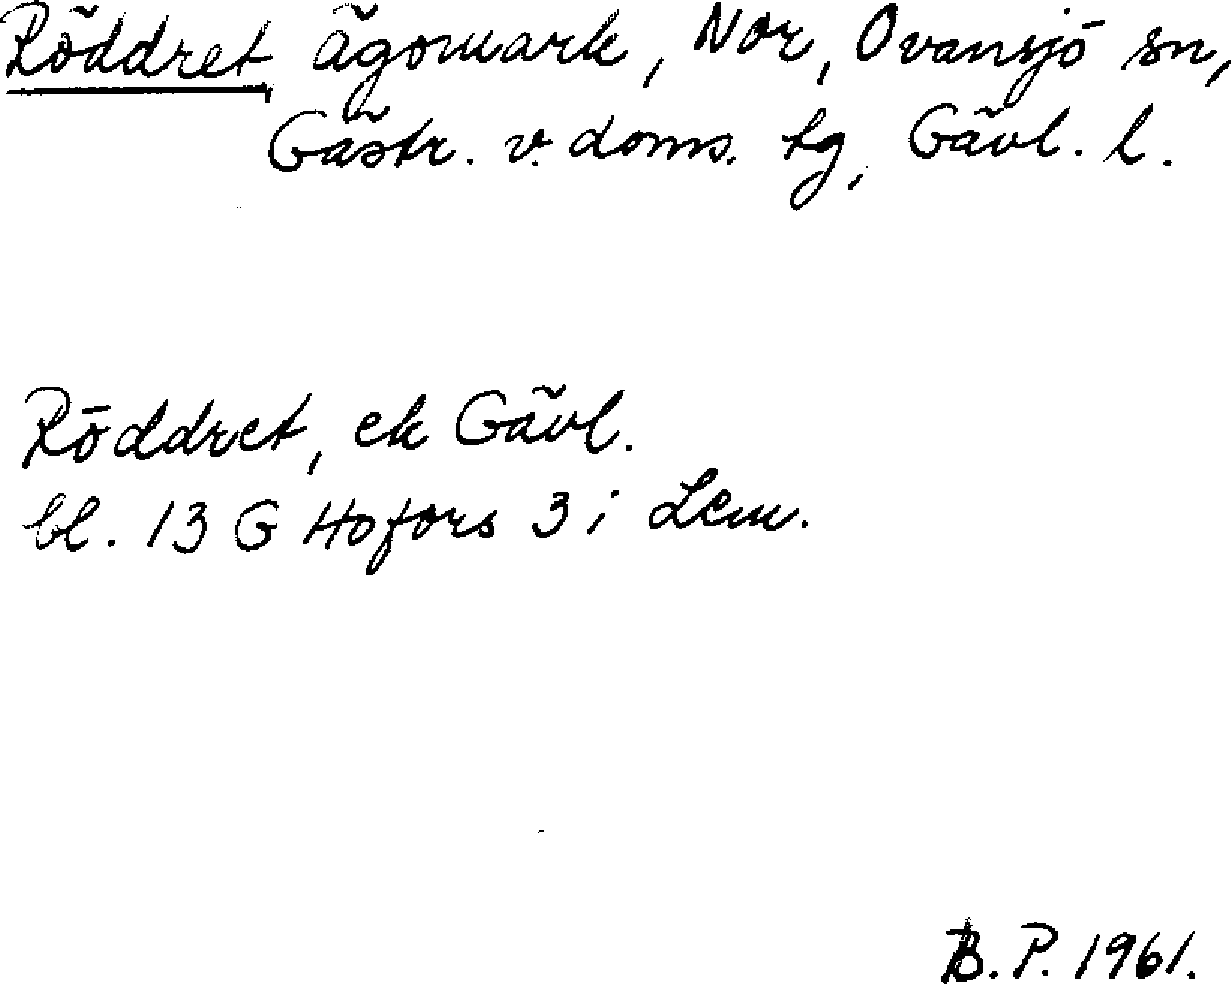 Röddret, ägomark, Nor, Ovansjö sn,
Gästr. v. doms. tg, Gävl. l.
Röddret, ek Gävl.
bl. 13 G Hofors 3 i Lem.
B. P. 1961.